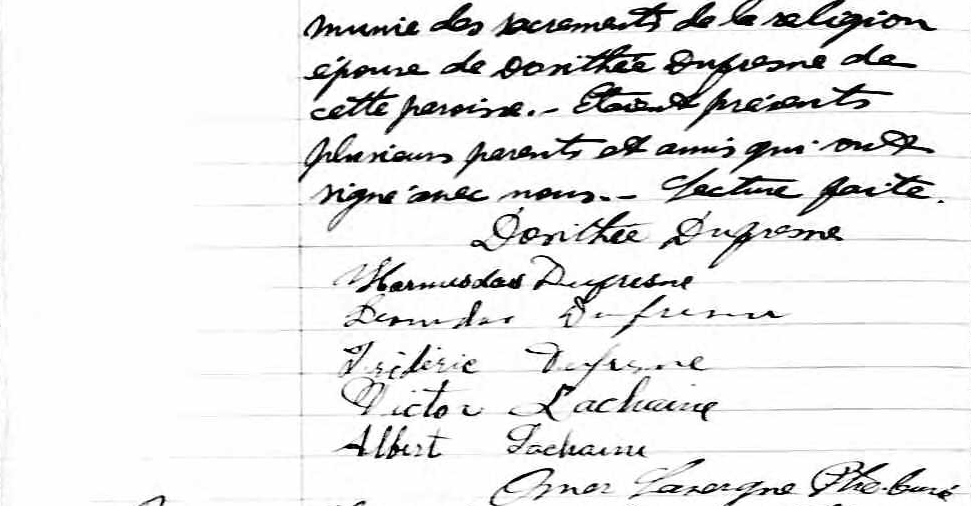 munie des sacrements de la religion
épouse de Dorithée Dufresne de
cette paroisse. - Etaient présents
plusieurs parents et amis qui ont
signé avec nous. - Lecture faite.
Dorithée Dufresne
Hormisdas Dufresne
Leonidas Dufresne
Frédéric Dufresne
Victor Lachaine
Albert Lachaine
Omer Lavergne Ptre-Curé